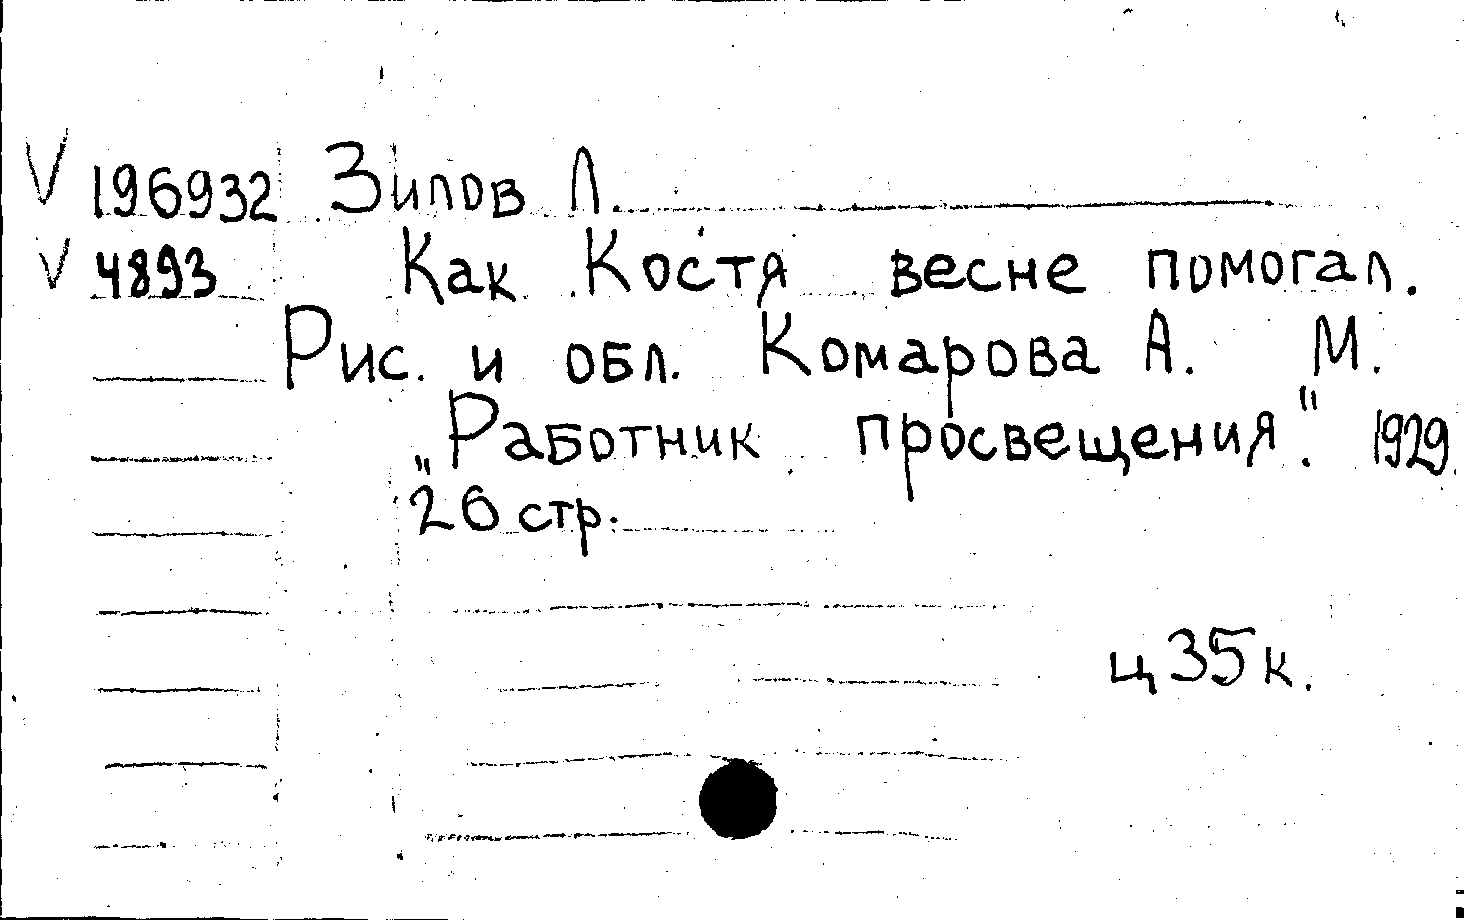 V 196932 Зилов Л.
V 4893 Как Костя весне помогал.
Рис. и обл. Комарова А. М.
„Работник просвещения." 1929.
26 стр.
ц 35 к.